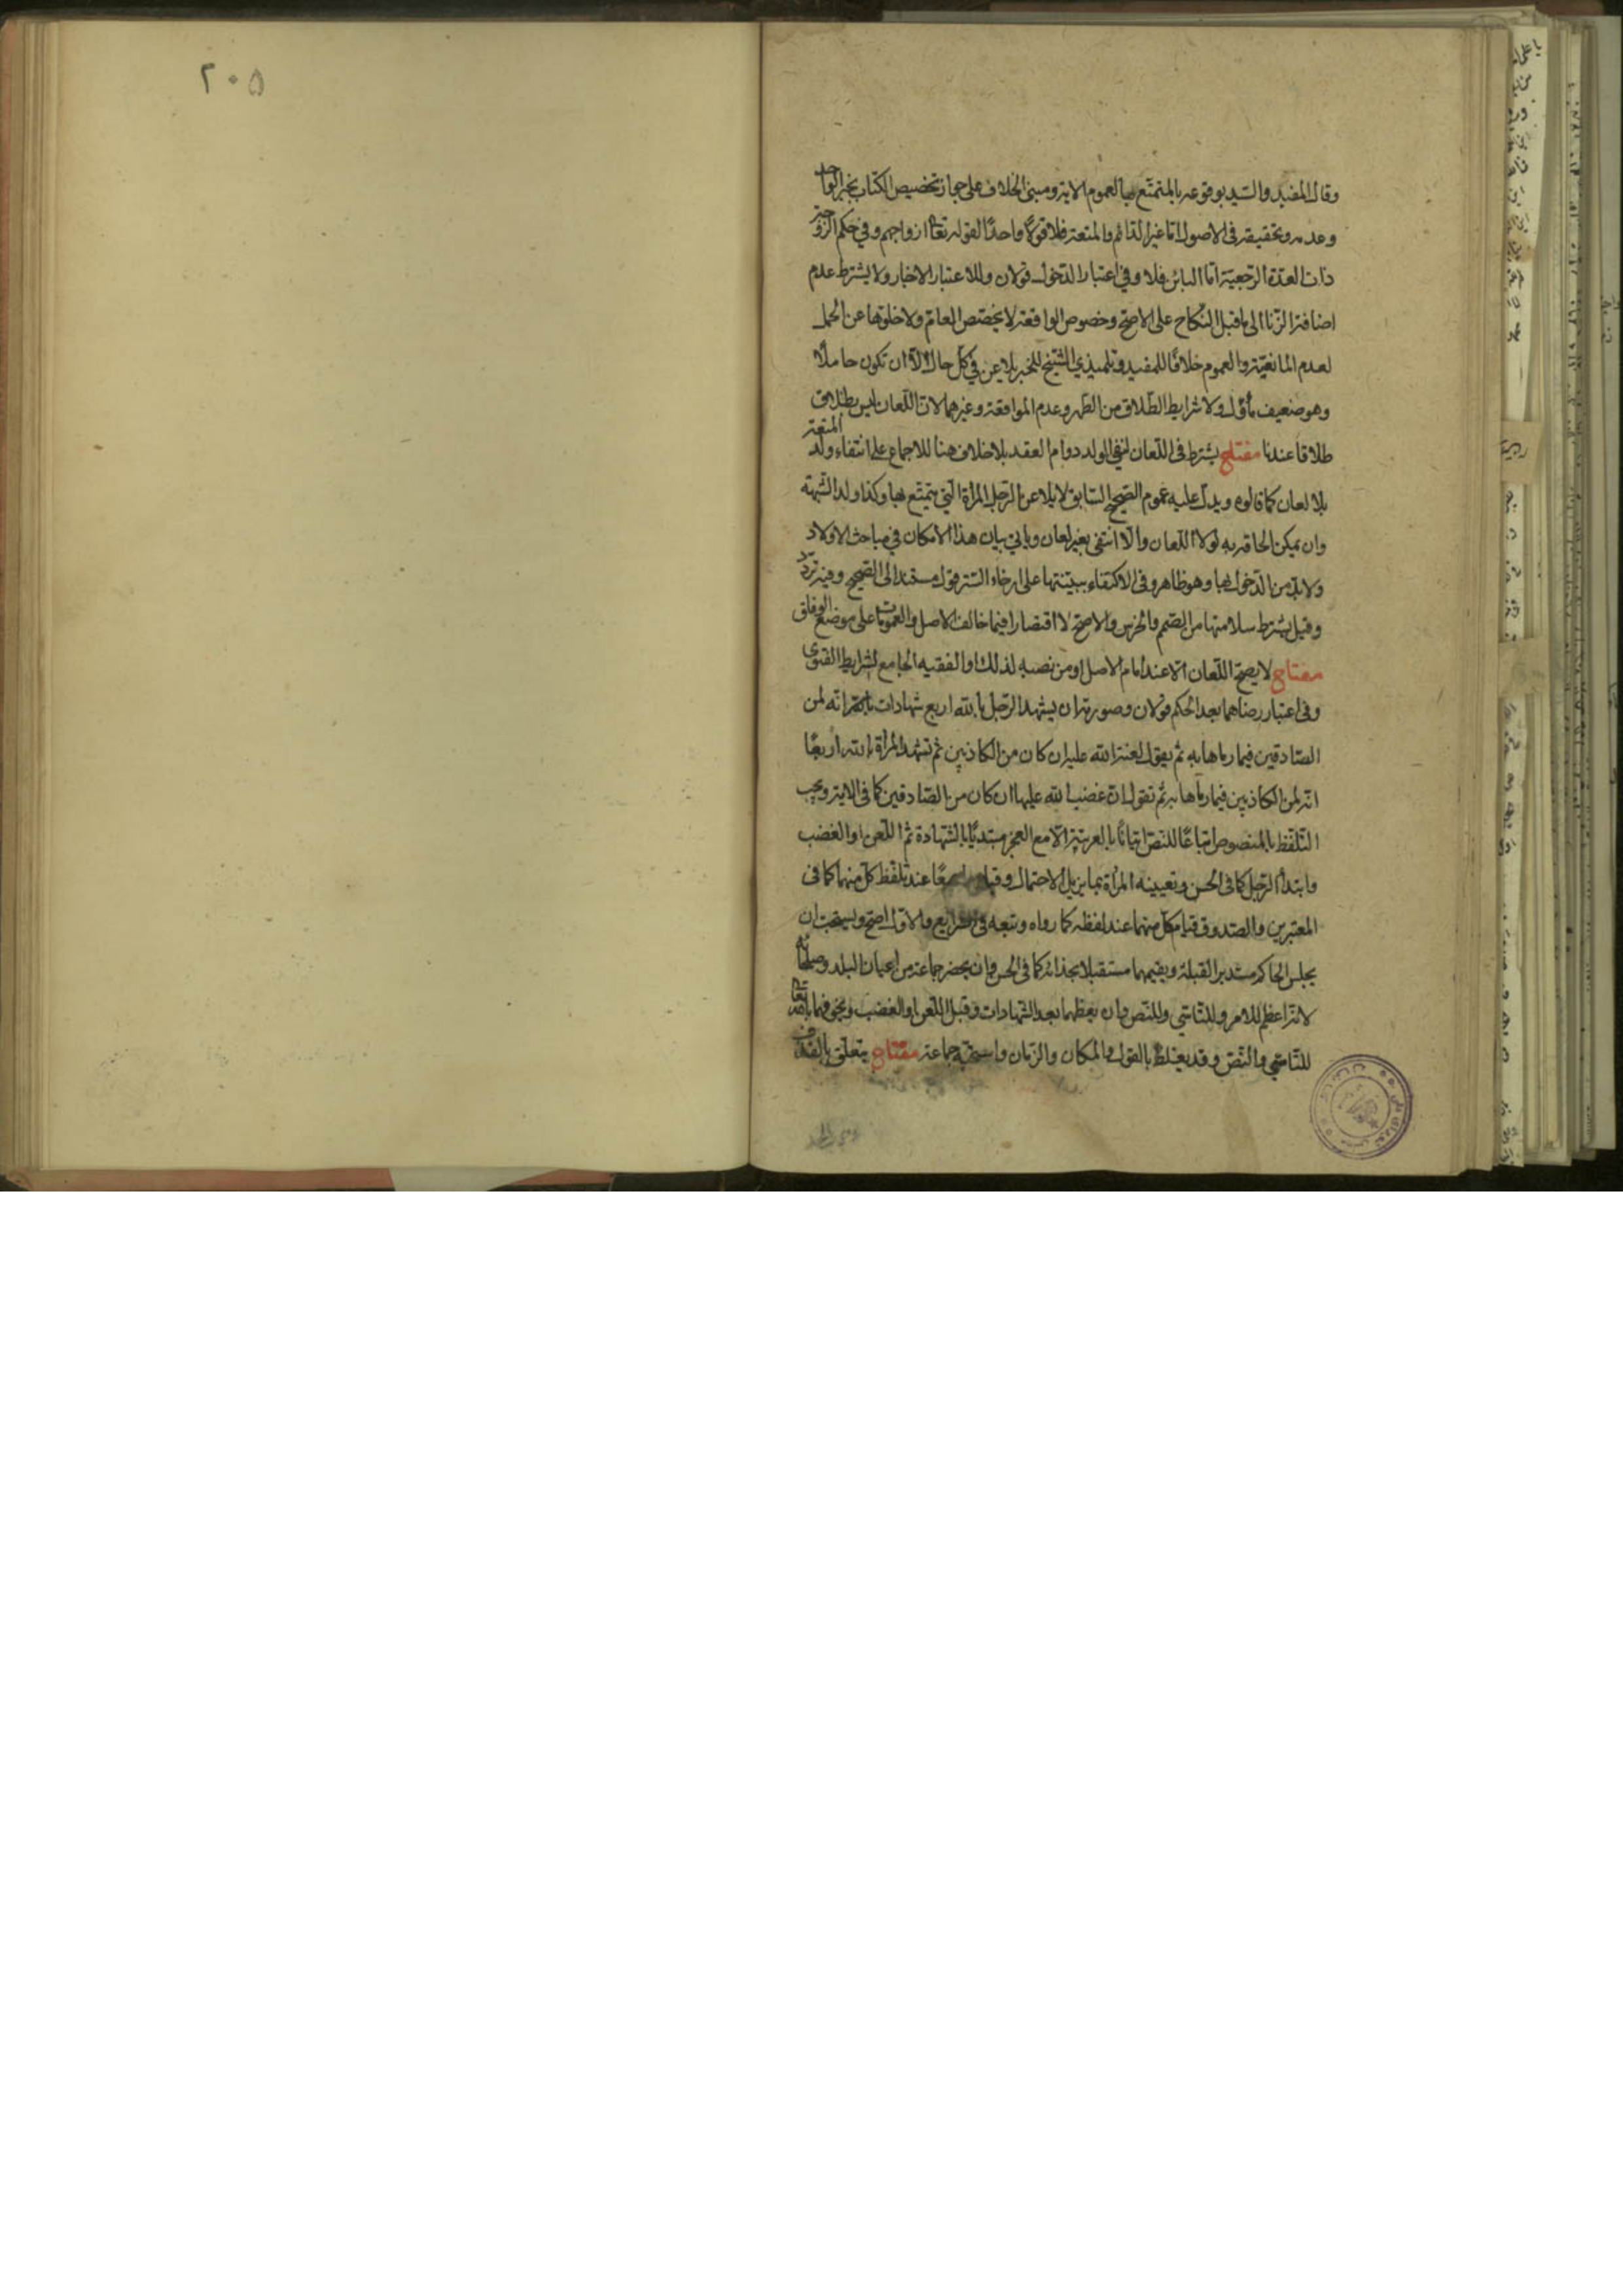 ٢٠٥
وقال المفيد والسيد بوقوعه بالمتمتع بها لعموم الاية ومبنى الخلاف على جواز تخصيص الكتاب بخبر الواحد
وعدمه وتحقيقه في الاصول اما غير الدائم والمتعة فلا قولًا واحدًا لقوله تعا ازواجهم وفي حكم الزوجة
ذات العدة الرجعية اما البائن فلا وفي اعتبار الدخول قولان وللاعتبار الاخبار ولا يشترط عدم
اضافة الزنا الى ما قبل النكاح على الاصح وخصوص الواقعة لا يخصص العام ولا خلوها عن الحمل
لعدم المانعية والعموم خلافًا للمفيد وتلميذي الشيخ للخبر يلاعن في كل حال الا ان تكون حاملًا
وهو ضعيف مأول ولا شرايط الطلاق من الطهر وعدم المواقعة وغيرهما لان اللعان ليس بطلاق
طلاقا عندنا مفتاح يشترط في اللعان لنفي الولد دوام العقد بلا خلاف هنا للاجماع على انتفاء ولد المتعة
بلا لعان كما قالوه ويدل عليه عموم الصحيح السابق لا يلاعن الرجل المرأة التي يتمتع بها وكذا ولد الشبهة
وان يمكن الحاقه به لولا اللعان والا انتفى بغير لعان وياتي بيان هذا الامكان في مباحث الاولاد
ولا بد من الدخول بها وهو ظاهر وفي الاكتفاء ببينتها على ارخاء الستر قول مستند الى الصحيح وفيه تردد
وقيل يشترط سلامتها من الصمم والخرس والاصح لا اقتصارا فيما خالف الاصل والعمومات على موضع الوفاق
مفتاح لا يصح اللعان الا عند امام الاصل او من نصبه لذلك او الفقيه الجامع لشرايط الفتوى
وفي اعتبار رضاهما بعد الحكم قولان وصورته ان يشهد الرجل بالله اربع شهادات انه لمن
الصادقين فيما رماها به ثم يقول لعنة الله عليه ان كان من الكاذبين ثم تشهد المرأة بالله اربعًا
انه لمن الكاذبين فيما رماها به ثم تقول ان غضب الله عليها ان كان من الصادقين كما في الاية ويجب
التلفظ بالمنصوص اتباعًا للنص اتيانًا بالعربية الا مع العجز مبتديًا بالشهادة ثم اللعن او الغضب
وابتداء الرجل كما في الحسن وتعيينه المرأة بما يزيل الاحتمال عند تلفظ كل منهما كما في
المعتبرين والصدوق قيام كل منهما عند لفظه كما رواه وتبعه في الشرايع والاول اصح ويستحب ان
يجلس الحاكم مستدبر القبلة ويقيمهما مستقبلا بحذائه كما في الحسن وان يحضر جماعة من اعيان البلد وصلحائه
لانه اعظم للامر وللتاسي وللنص وان يعظهما بعد الشهادات وقبل اللعن او الغضب ويخوفهما بالله تعا
للتاسي والنص وقد يغلظ بالقول والمكان والزمان واستحبه جماعة مفتاح يتعلق بالقذف